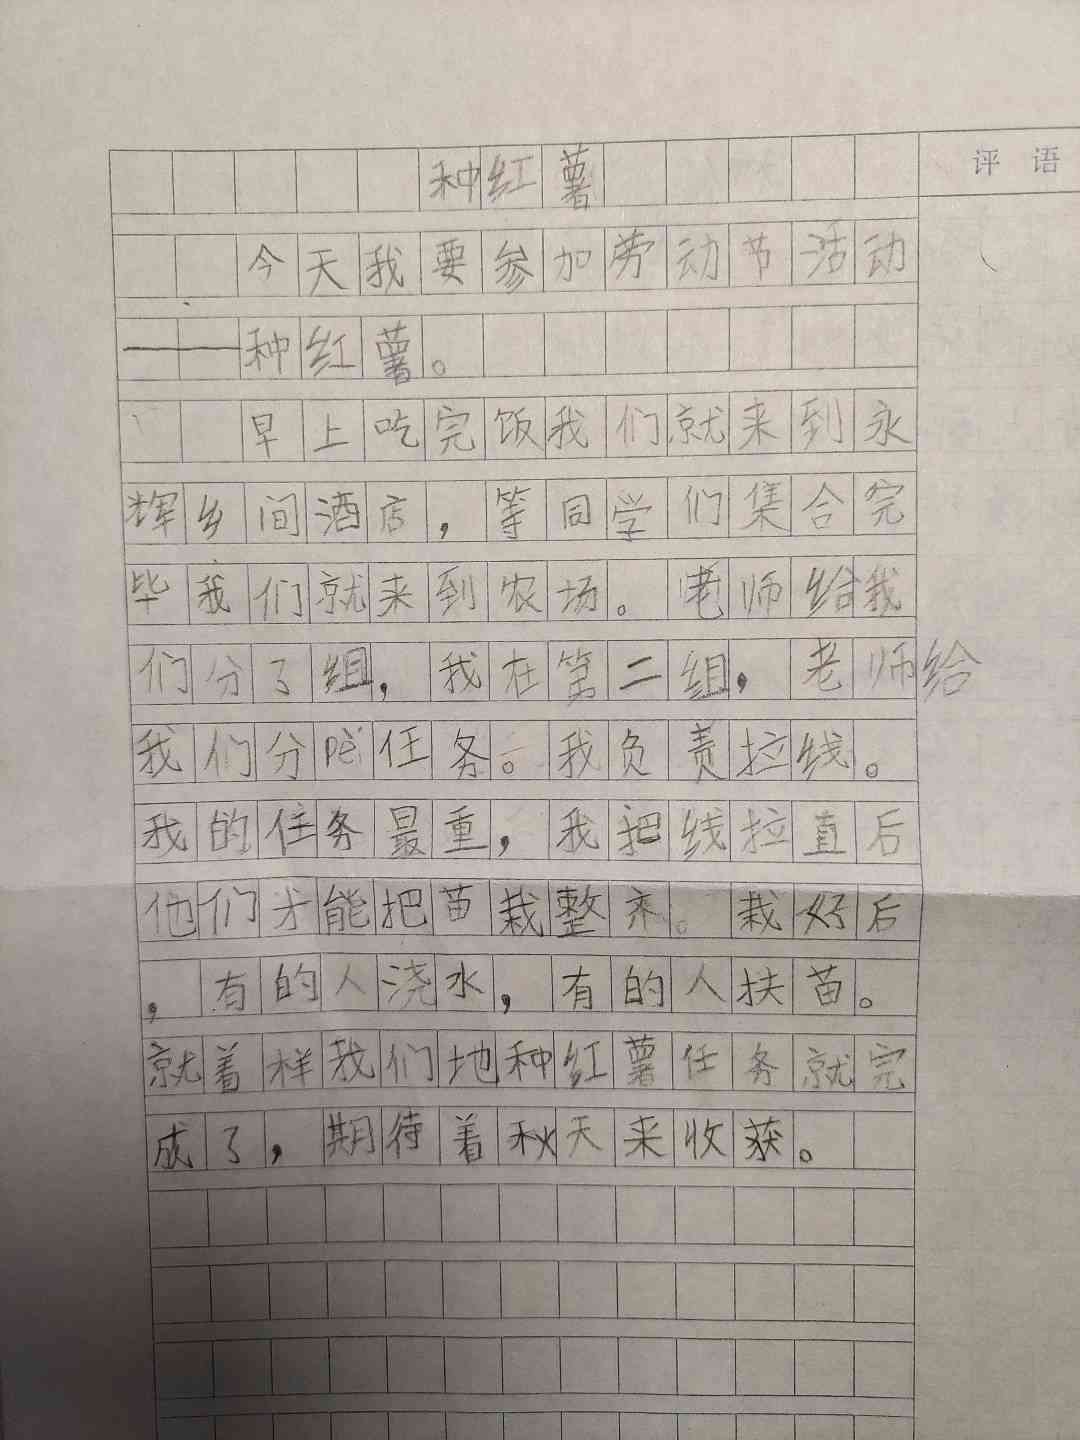 种红薯
评语
今天我要参加劳动节活动
——种红薯。
早上吃完饭我们就来到永
辉乡间酒店，等同学们集合完
毕我们就来到农场。老师给我
们分了组，我在第二组，老师给
我们分pèi任务。我负责拉线。
我的任务最重，我把线拉直后
他们才能把苗栽整齐。栽好后
，有的人浇水，有的人扶苗。
就着样我们地种红薯任务就完
成了，期待着秋天来收获。